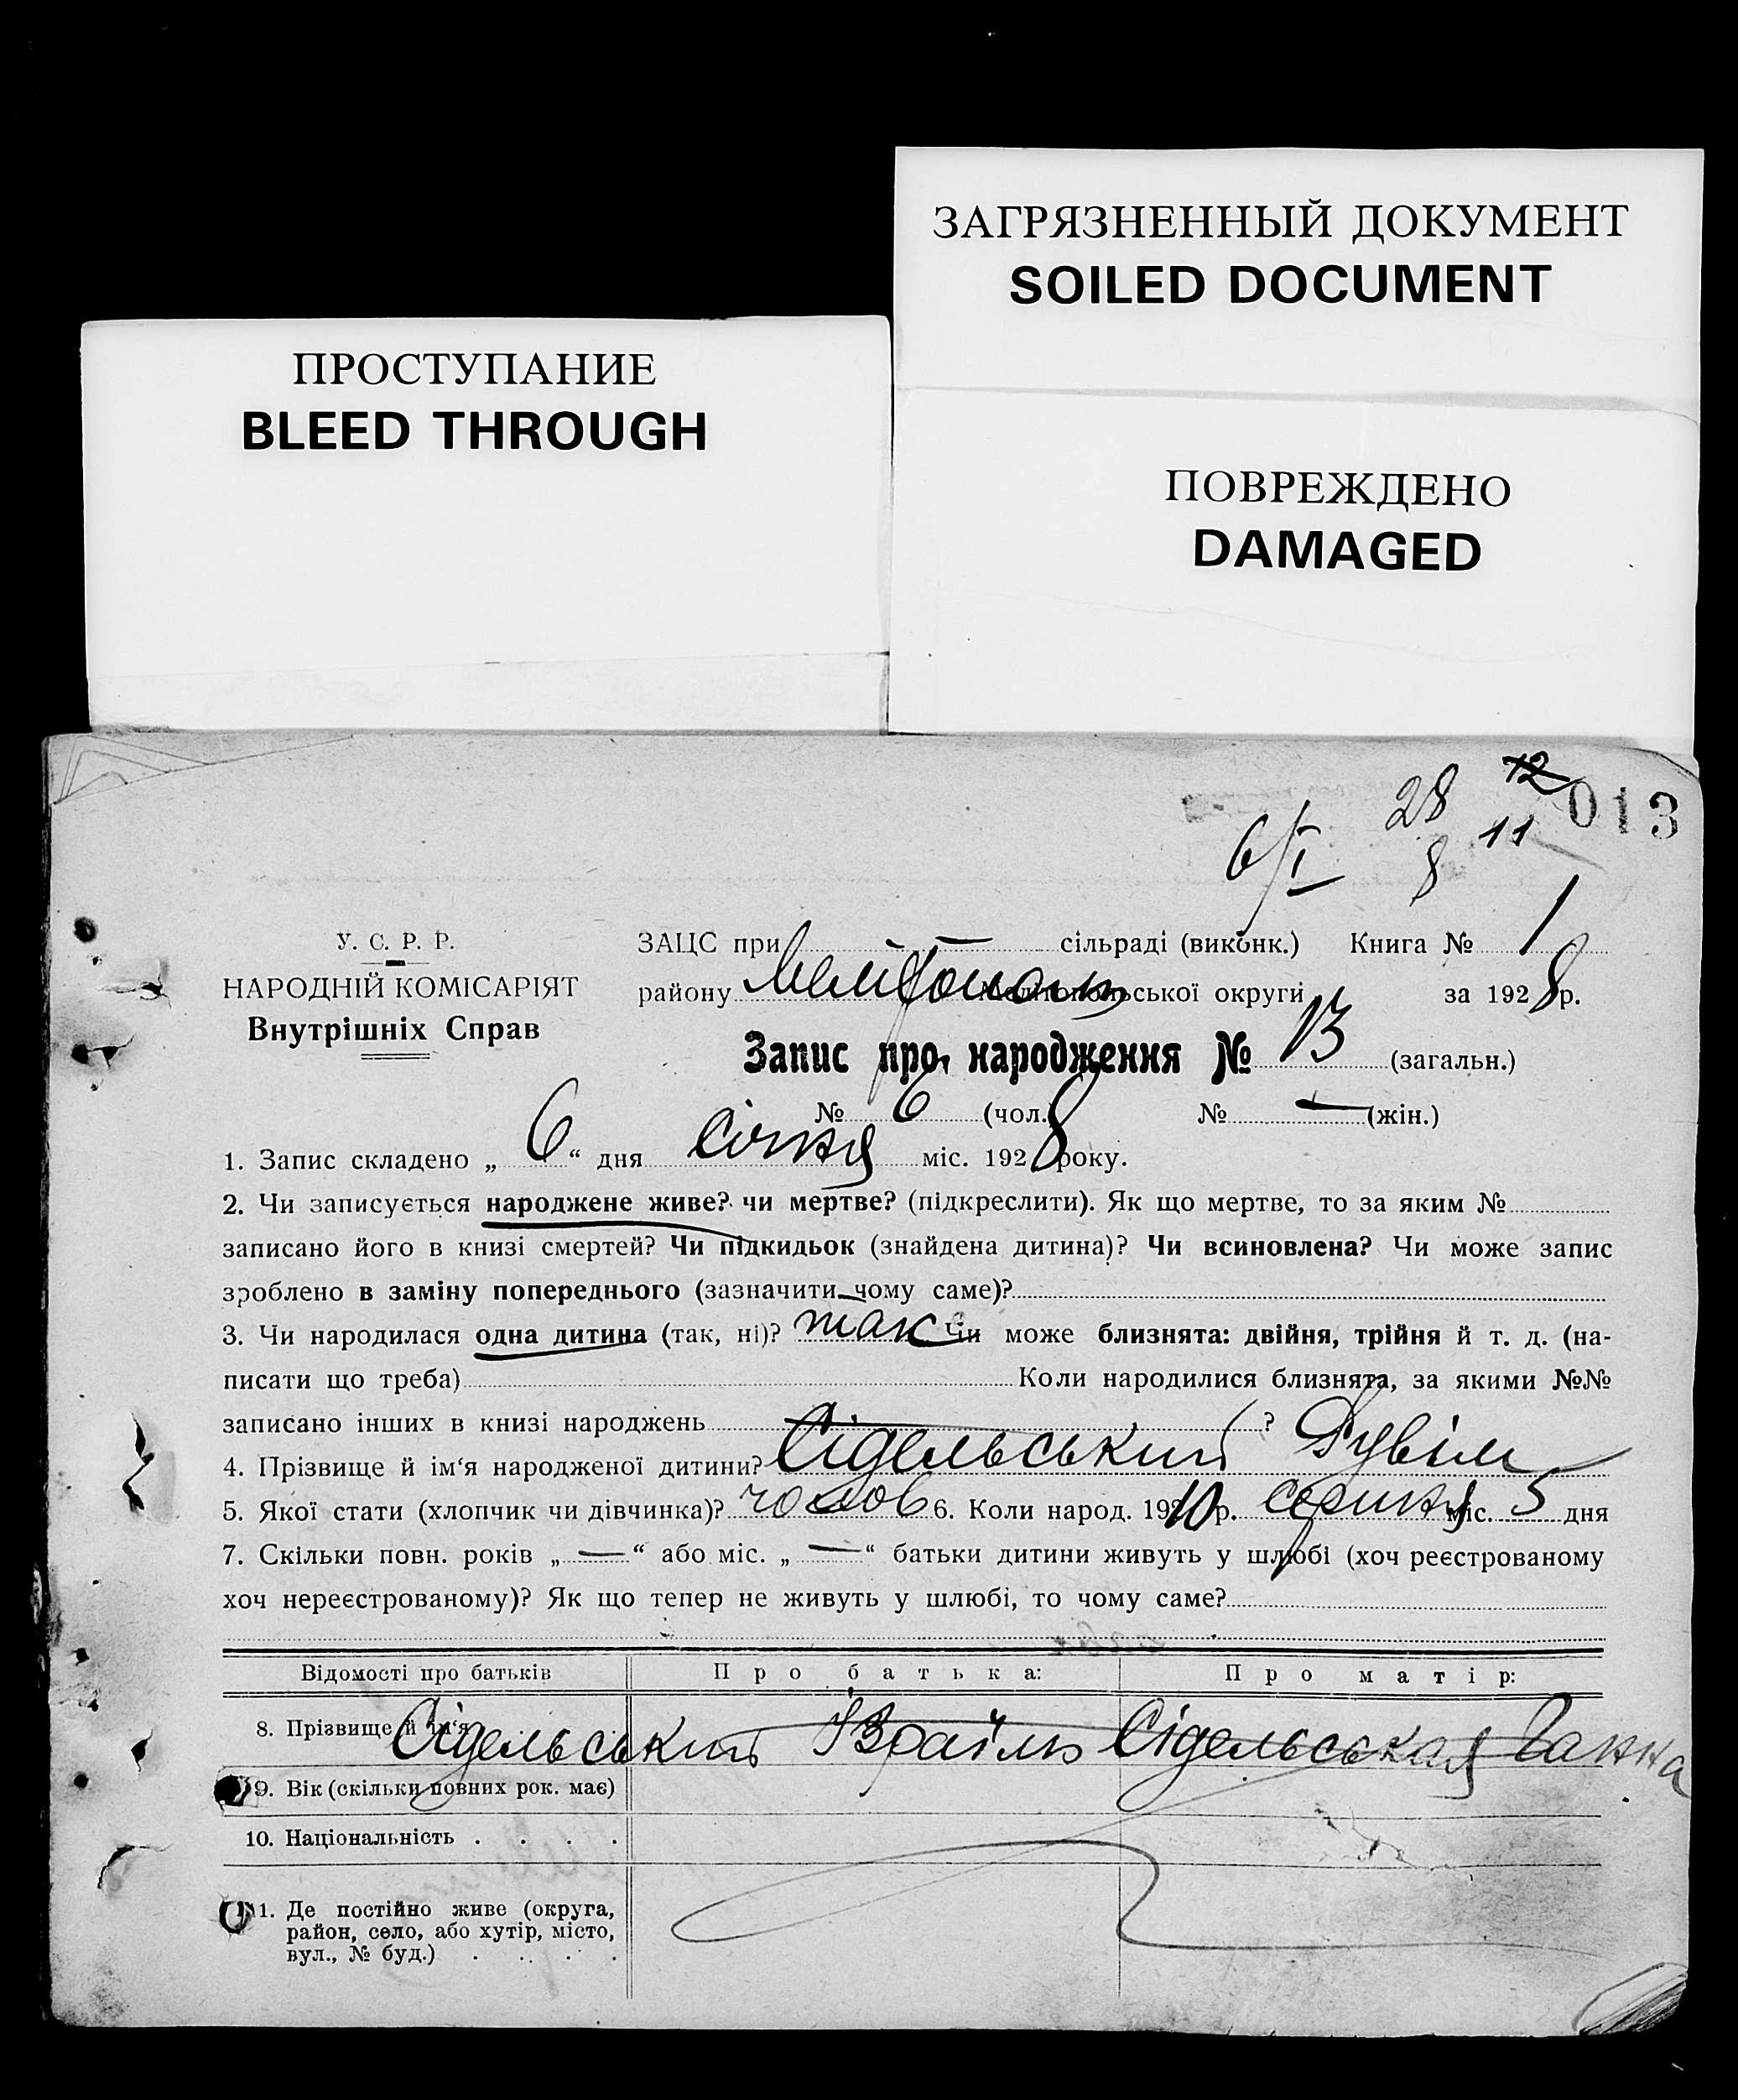 ЗАГРЯЗНЕННЫЙ ДОКУМЕНТ
SOILED DOCUMENT
ПРОСТУПАНИЕ
BLEED THROUGH
ПОВРЕЖДЕНО
DAMAGED
28 12 013
6/I 8 11
У. С. Р. Р.
НАРОДНІЙ КОМІСАРІЯТ
Внутрішніх Справ
ЗАЦС при — — сільраді (виконк.) Книга № 1
району Мелітополь Мелітопольської округи за 1928 р.
Запис про народження № 13 (загальн.)
№ 6 (чол.) № — (жін.)
1. Запис складено „ 6 “ дня січня міс. 1928 року.
2. Чи записується народжене живе? чи мертве? (підкреслити). Як що мертве, то за яким №
записано його в книзі смертей? Чи підкидьок (знайдена дитина)? Чи всиновлена? Чи може запис
зроблено в заміну попереднього (зазначити чому саме)?
3. Чи народилася одна дитина (так, ні)? так Чи може близнята: двійня, трійня й т. д. (на-
писати що треба) Коли народилися близнята, за якими №№
записано інших в книзі народжень ?
4. Прізвище й ім‘я народженої дитини? Сідельський Рувім
5. Якої стати (хлопчик чи дівчинка)? чолов 6. Коли народ. 1910 р. серпня міс. 5 дня
7. Скільки повн. років „ — “ або міс. „ — “ батьки дитини живуть у шлюбі (хоч реєстрованому
хоч нереєстрованому)? Як що тепер не живуть у шлюбі, то чому саме?
Відомості про батьків Про батька: Про матір:
8. Прізвище й ім‘я Сідельський Ізраїль Сідельська Ганна
9. Вік (скільки повних рок. має)
10. Національність . . . .
11. Де постійно живе (округа,
район, село, або хутір, місто,
вул., № буд.) . . . .